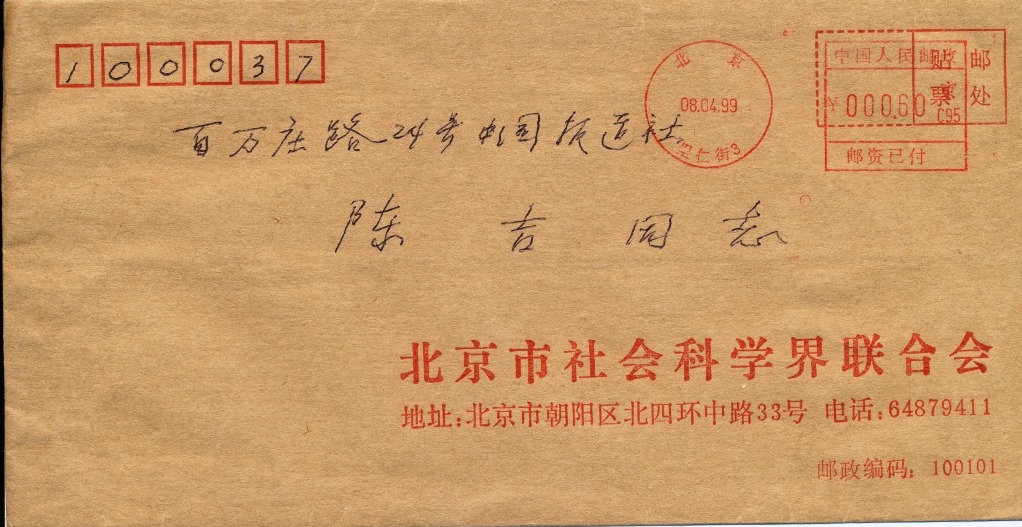 100037
北京
08.04.99
中国人民邮政
¥00060
C95
邮资已付
贴邮
票处
百万庄路24号中国报道社
陈吉同志
北京市社会科学界联合会
地址:北京市朝阳区北四环中路33号 电话:64879411
邮政编码: 100101